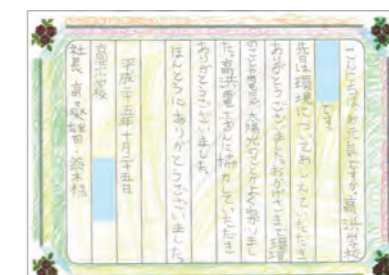 こんにちはお元気ですか。高浜学校
です。
先日は環境についておしえていただき
ありがとうございました。おかげさまで環境
のことや電気、太陽光のことがよくわかりまし
た。高浜電工さんに協力していただき
ありがとうございました。
ほんとうにありがとうございました。
平成二十五年十月二十五日
高浜小学校
社長 高